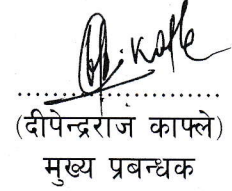 (दीपेन्द्रराज काफ्ले)
मुख्य प्रबन्धक